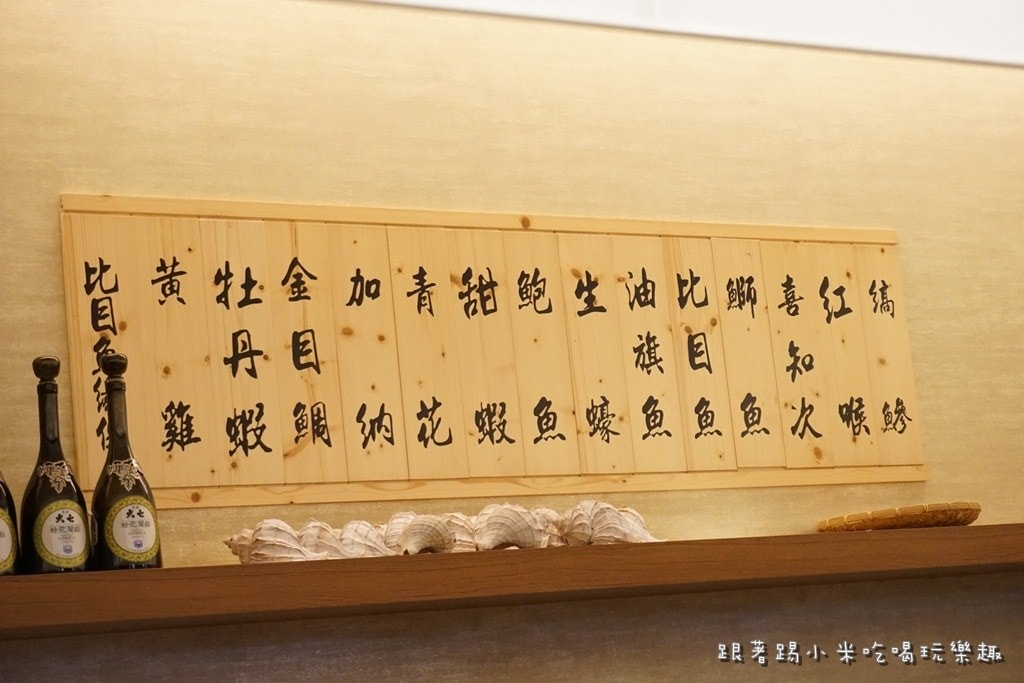 縞鰺
紅喉
喜知次
鰤魚
比目魚
油旗魚
生蠔
鮑魚
甜蝦
青花
加納
金目鯛
牡丹蝦
黃雞
比目魚
大七
大七
跟著踢小米吃喝玩樂趣